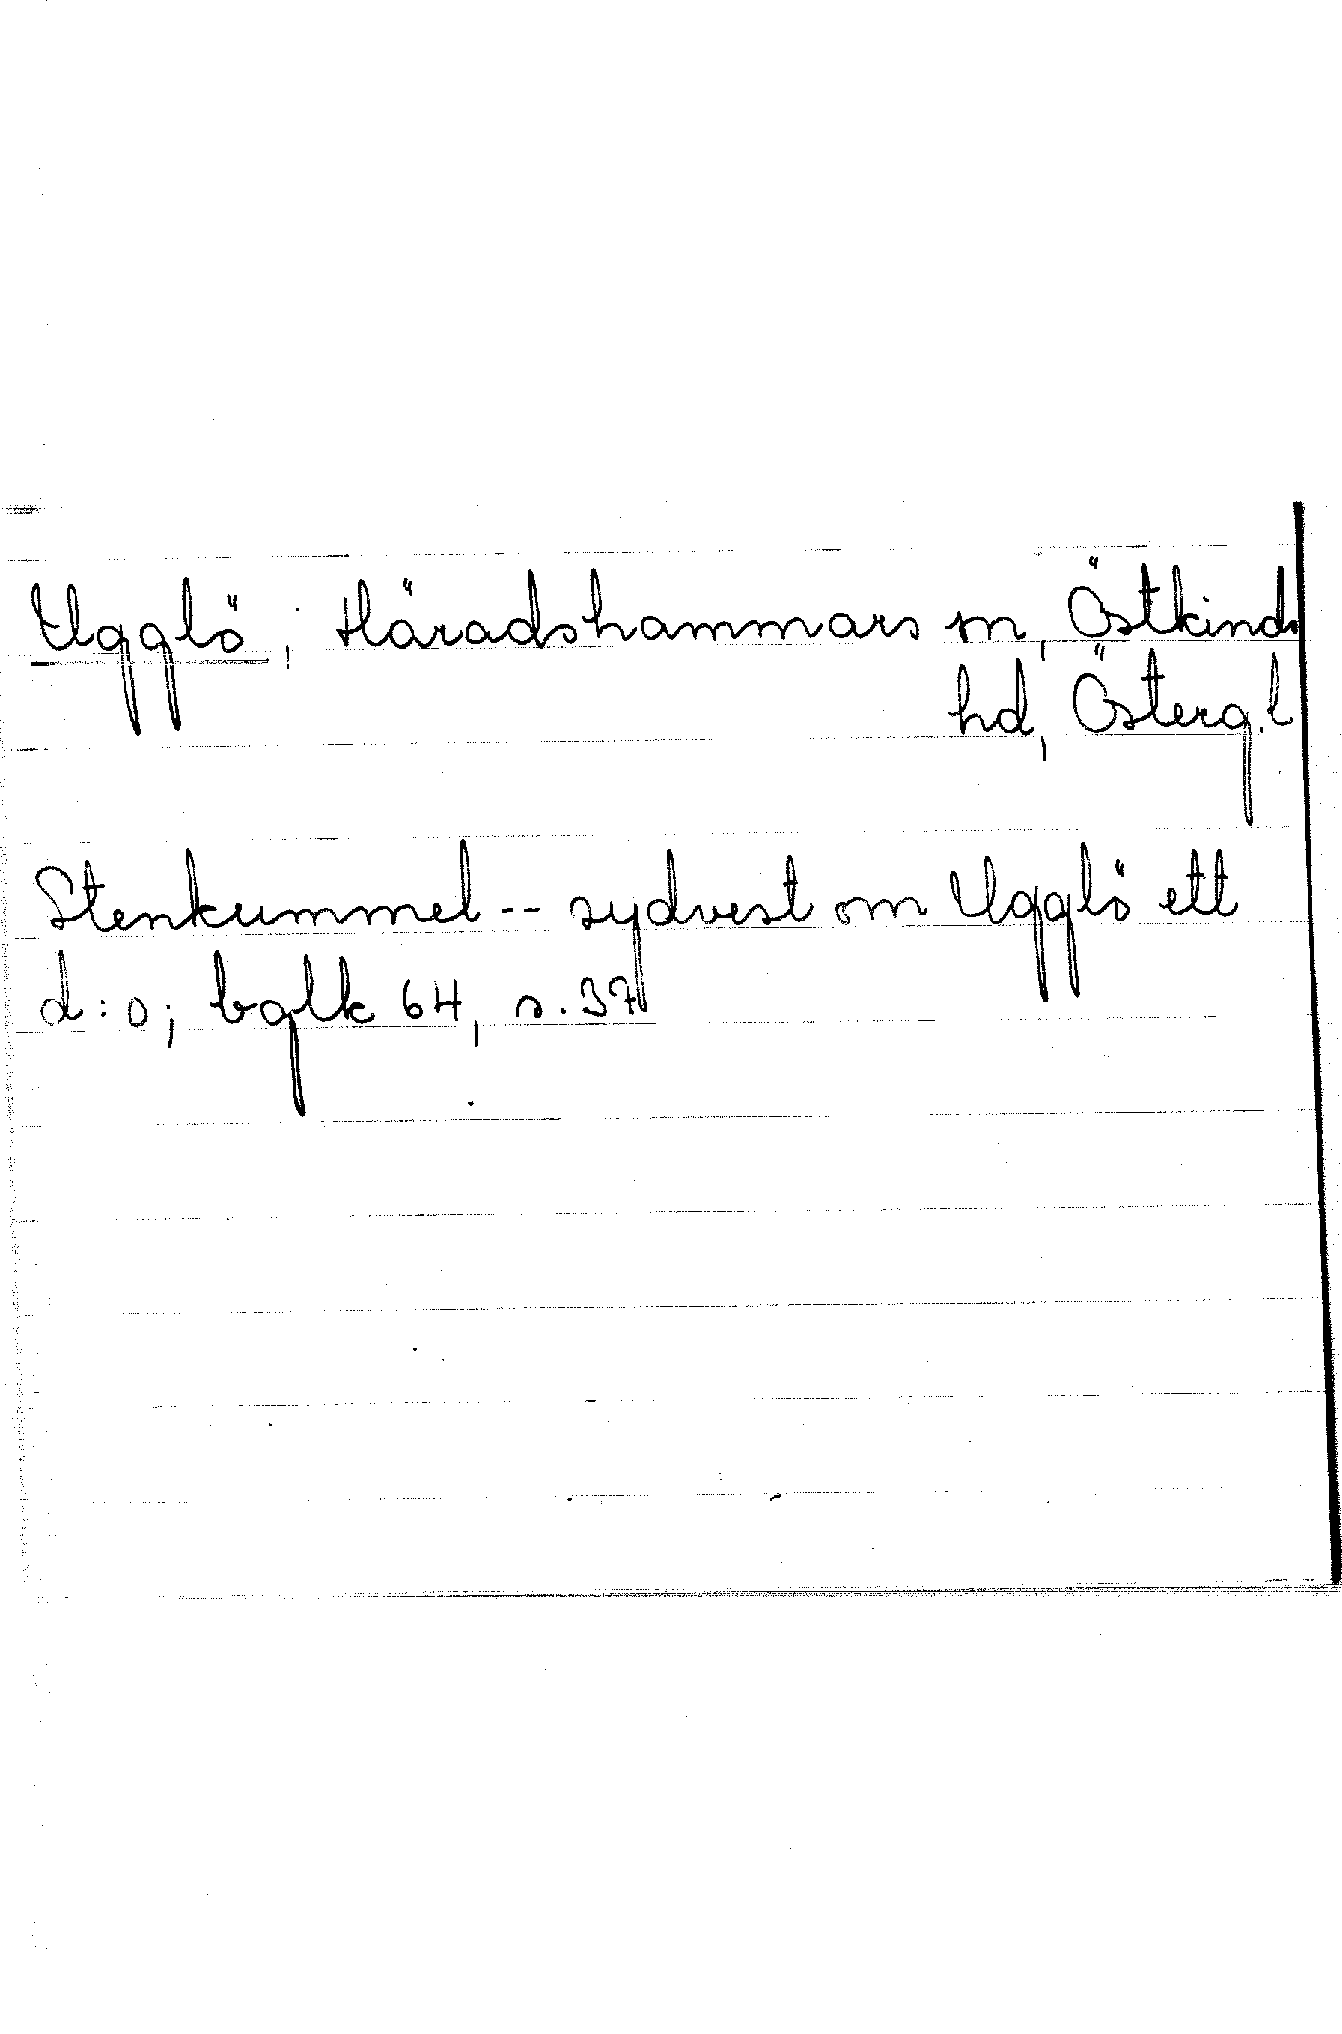 Ugglö, Häradshammars sn, Östkinds
hd, Österg. l
Stenkummel -- sydvest om Ugglö ett
d:o; bglk 64, s. 37